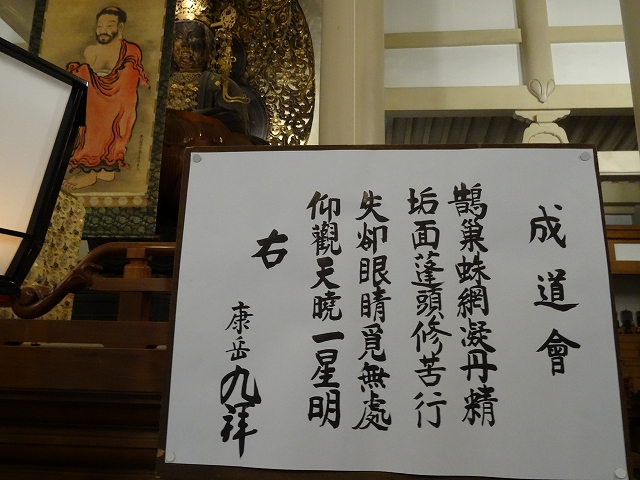 成道會
鵲巢蛛網凝丹精
垢面蓬頭修苦行
失卻眼睛覓無處
仰觀天曉一星明
右
康岳九拜